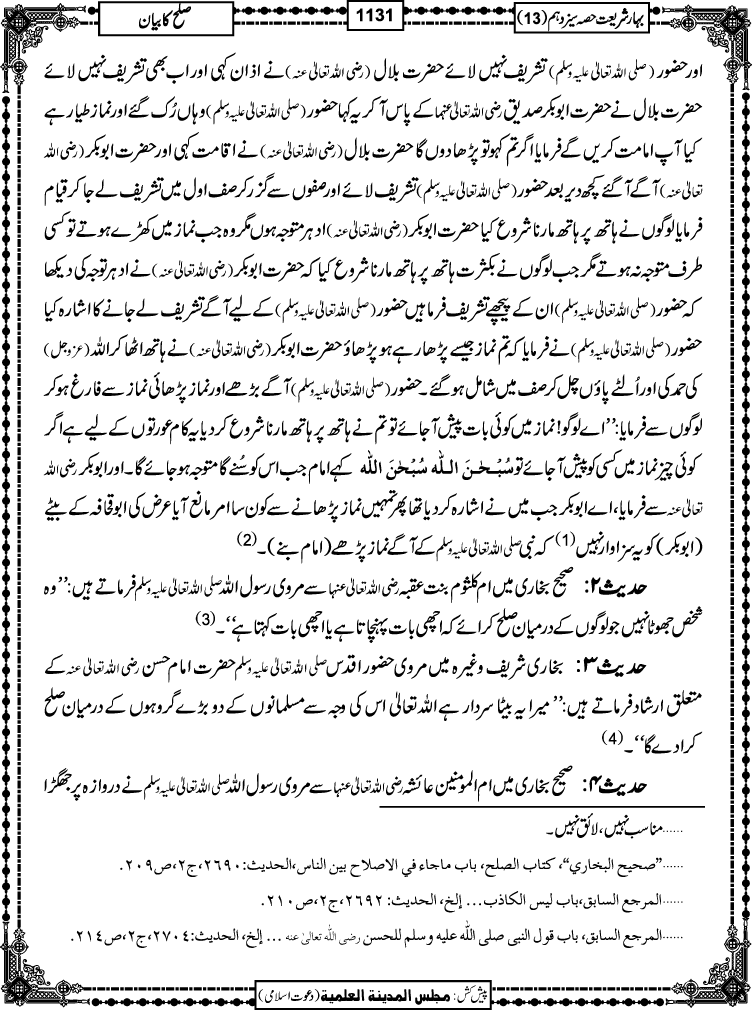 بہارِ شریعت حصہ سیزدہم (13)
1131
صلح کا بیان
اور حضور (صلی اللہ تعالیٰ علیہ وسلم) تشریف نہیں لائے حضرت بلال (رضی اللہ تعالیٰ عنہ) نے اذان کہی اور اب بھی تشریف نہیں لائے
حضرت بلال نے حضرت ابوبکر صدیق رضی اللہ تعالیٰ عنہما کے پاس آکر یہ کہا حضور (صلی اللہ تعالیٰ علیہ وسلم) وہاں رُک گئے اور نماز طیار ہے
کیا آپ امامت کریں گے فرمایا اگر تم کہو تو پڑھا دوں گا حضرت بلال (رضی اللہ تعالیٰ عنہ) نے اقامت کہی اور حضرت ابوبکر (رضی اللہ
تعالیٰ عنہ) آگے آگئے کچھ دیر بعد حضور (صلی اللہ تعالیٰ علیہ وسلم) تشریف لائے اور صفوں سے گزر کر صف اول میں تشریف لے جاکر قیام
فرمایا لوگوں نے ہاتھ پر ہاتھ مارنا شروع کیا حضرت ابوبکر (رضی اللہ تعالیٰ عنہ) ادہر متوجہ ہوں مگر وہ جب نماز میں کھڑے ہوتے تو کسی
طرف متوجہ نہ ہوتے مگر جب لوگوں نے بکثرت ہاتھ پر ہاتھ مارنا شروع کیا کہ حضرت ابوبکر (رضی اللہ تعالیٰ عنہ) نے ادہر توجہ کی دیکھا
کہ حضور (صلی اللہ تعالیٰ علیہ وسلم) ان کے پیچھے تشریف فرما ہیں حضور (صلی اللہ تعالیٰ علیہ وسلم) کے لیے آگے تشریف لے جانے کا اشارہ کیا
حضور (صلی اللہ تعالیٰ علیہ وسلم) نے فرمایا کہ تم نماز جیسے پڑھا رہے ہو پڑھاؤ حضرت ابوبکر (رضی اللہ تعالیٰ عنہ) نے ہاتھ اٹھا کر اللہ (عزوجل)
کی حمد کی اور اُلٹے پاؤں چل کر صف میں شامل ہوگئے۔ حضور (صلی اللہ تعالیٰ علیہ وسلم) آگے بڑھے اور نماز پڑھائی نماز سے فارغ ہوکر
لوگوں سے فرمایا: ’’اے لوگو! نماز میں کوئی بات پیش آجائے تو تم نے ہاتھ پر ہاتھ مارنا شروع کردیا یہ کام عورتوں کے لیے ہے اگر
کوئی چیز نماز میں کسی کو پیش آجائے تو سُبْحٰنَ اللّٰه سُبْحٰنَ اللّٰه کہے امام جب اس کو سُنے گا متوجہ ہوجائے گا۔ اور ابوبکر رضی اللہ
تعالیٰ عنہ سے فرمایا، اے ابوبکر جب میں نے اشارہ کردیا تھا پھر تمہیں نماز پڑھانے سے کون سا امر مانع آیا عرض کی ابوقحافہ کے بیٹے
(ابوبکر) کو یہ سزاوار نہیں (1) کہ نبی صلی اللہ تعالیٰ علیہ وسلم کے آگے نماز پڑھے (امام بنے)۔ (2)
حدیث ۲: صحیح بخاری میں ام کلثوم بنت عقبہ رضی اللہ تعالیٰ عنہا سے مروی رسول اللہ صلی اللہ تعالیٰ علیہ وسلم فرماتے ہیں: ’’وہ
شخص جھوٹا نہیں جو لوگوں کے درمیان صلح کرائے کہ اچھی بات پہنچاتا ہے یا اچھی بات کہتا ہے‘‘۔ (3)
حدیث ۳: بخاری شریف وغیرہ میں مروی حضور اقدس صلی اللہ تعالیٰ علیہ وسلم حضرت امام حسن رضی اللہ تعالیٰ عنہ کے
متعلق ارشاد فرماتے ہیں: ’’میرا یہ بیٹا سردار ہے اللہ تعالیٰ اس کی وجہ سے مسلمانوں کے دو بڑے گروہوں کے درمیان صلح
کرا دے گا‘‘۔ (4)
حدیث ۴: صحیح بخاری میں ام المومنین عائشہ رضی اللہ تعالیٰ عنہا سے مروی رسول اللہ صلی اللہ تعالیٰ علیہ وسلم نے دروازہ پر جھگڑا
......مناسب نہیں، لائق نہیں۔
......"صحيح البخاري"، كتاب الصلح، باب ماجاء في الاصلاح بين الناس، الحديث: ٢٦٩٠، ج٢، ص٢٠٩.
......المرجع السابق، باب ليس الكاذب... إلخ، الحديث: ٢٦٩٢، ج٢، ص٢١٠.
......المرجع السابق، باب قول النبی صلی اللّٰه علیه وسلم للحسن رضی اللّٰہ تعالیٰ عنہ ... إلخ، الحدیث: ٢٧٠٤، ج٢، ص٢١٤.
پیش کش: مجلس المدینة العلمیة (دعوت اسلامی)